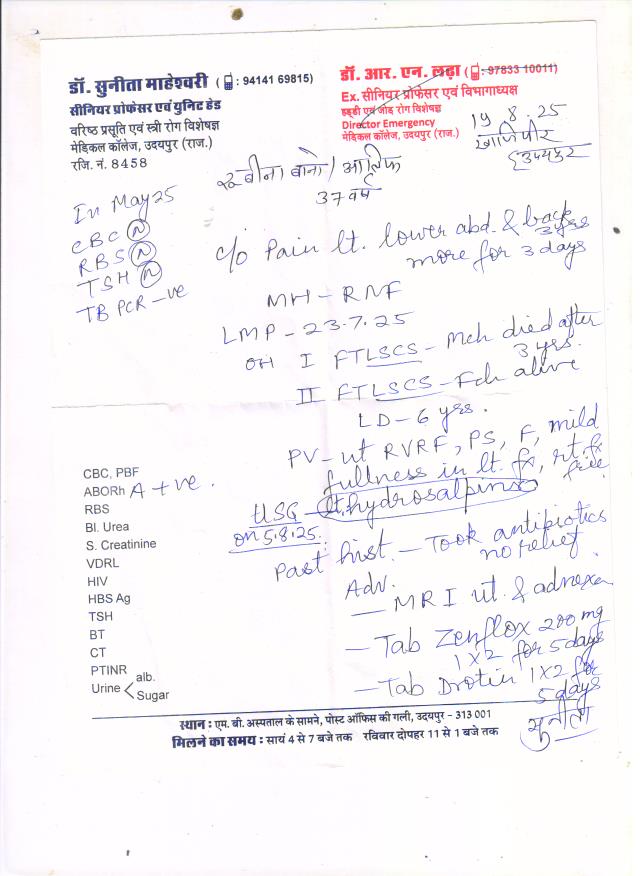 डॉ. सुनीता माहेश्वरी ( : 94141 69815)
सीनियर प्रोफेसर एवं यूनिट हेड
वरिष्ठ प्रसूति एवं स्त्री रोग विशेषज्ञ
मेडिकल कॉलेज, उदयपुर (राज.)
रजि. नं. 8458
डॉ. आर. एन. लढ़ा ( : 97833 10011)
Ex. सीनियर प्रोफेसर एवं विभागाध्यक्ष
हड्डी एवं जोड़ रोग विशेषज्ञ
Director Emergency
मेडिकल कॉलेज, उदयपुर (राज.)
19.8.25
खांजीपीर
उदयपुर
रूबीना बानो / आसिफ
37 वर्ष
In May 25
CBC N
RBS N
TSH N
TB PCR -ve
c/o Pain lt. lower abd. & back
3 yrs
more for 3 days
MH - RNF
LMP - 23.7.25
OH I FTLSCS - Mch died after
3 yrs.
II FTLSCS - Fch alive
LD - 6 yrs.
PV - ut RVRF, PS, F, mild
fullness in lt. fx, rt. fx
free
USG - lt. hydrosalpinx
on 5.8.25.
Past hist. - Took antibiotics
no relief
Adv.
- MRI ut. & adnexa
- Tab Zenflox 200 mg
1 x 2 for 5 days
- Tab Drotin 1 x 2 for
5 days
सुनीता
CBC, PBF
ABORh A +ve.
RBS
Bl. Urea
S. Creatinine
VDRL
HIV
HBS Ag
TSH
BT
CT
PTINR
Urine < alb.
Sugar
स्थान : एम. बी. अस्पताल के सामने, पोस्ट ऑफिस की गली, उदयपुर - 313 001
मिलने का समय : सायं 4 से 7 बजे तक रविवार दोपहर 11 से 1 बजे तक